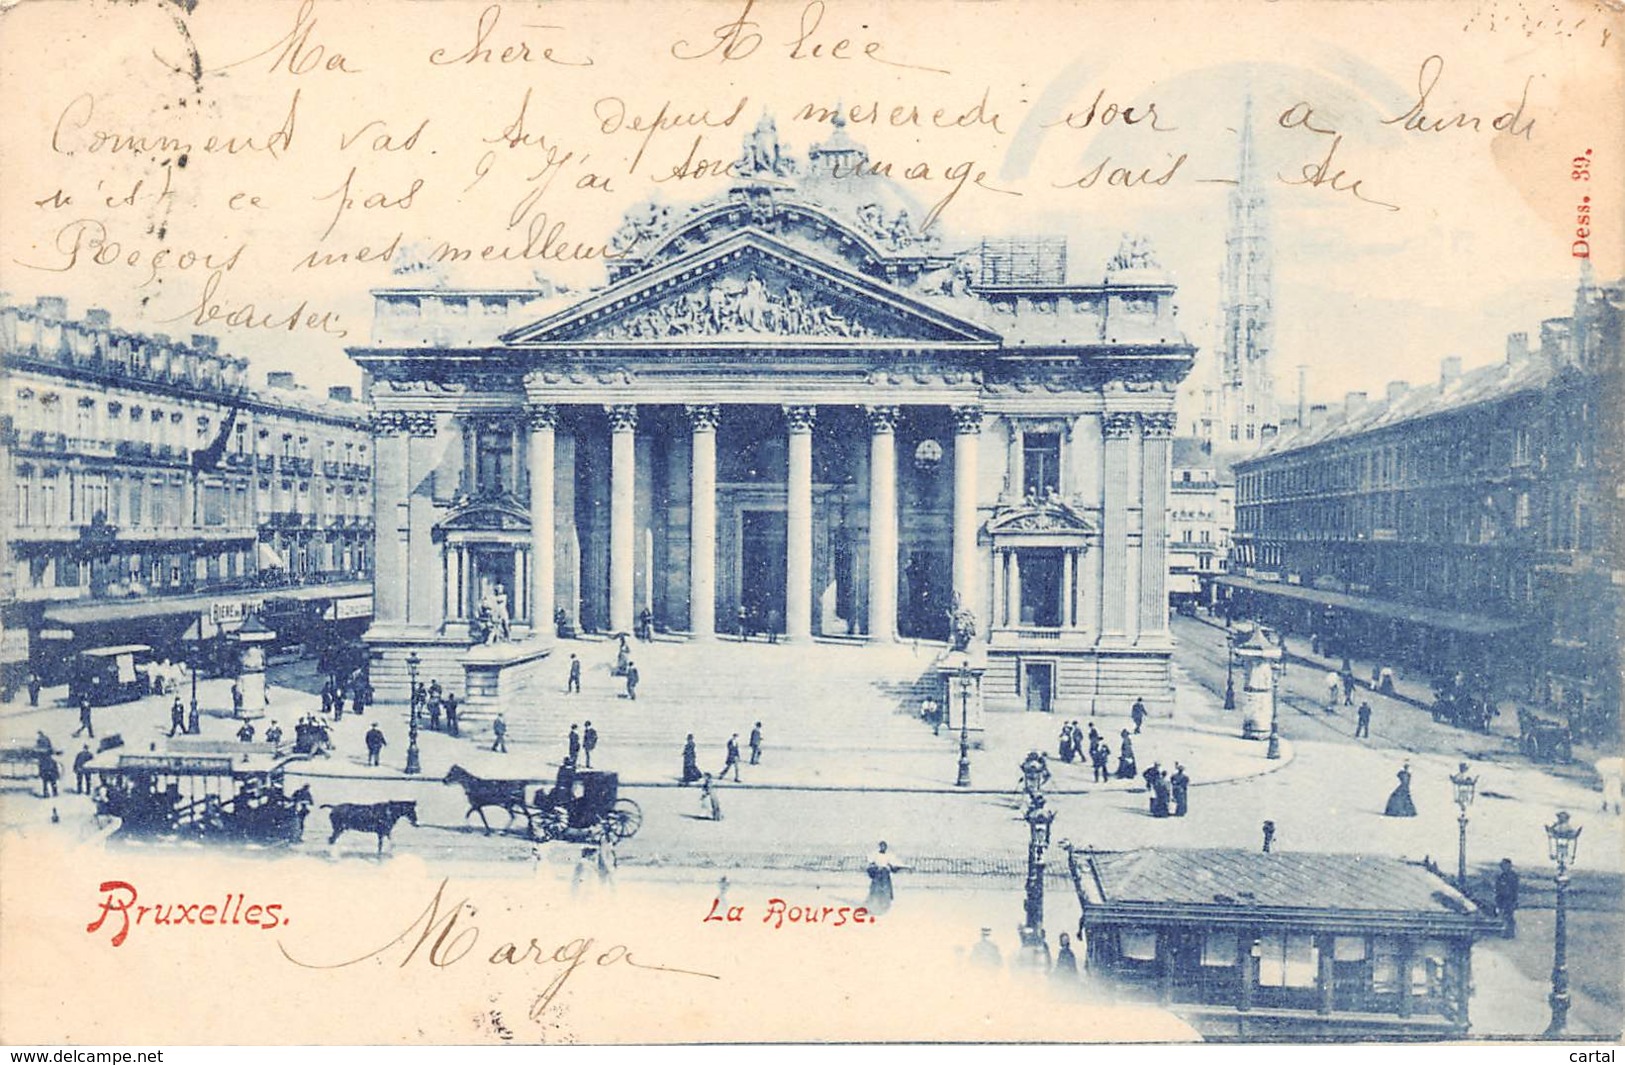 Ma chère Alice
Comment vas. tu depuis mercredi soir - a lundi
n'est. ce pas ? J'ai ton image sais - tu
Reçois mes meilleurs
baiser
Dess. 39.
BIERE DE
Bruxelles.
La Bourse.
Marga
www.delcampe.net
cartal